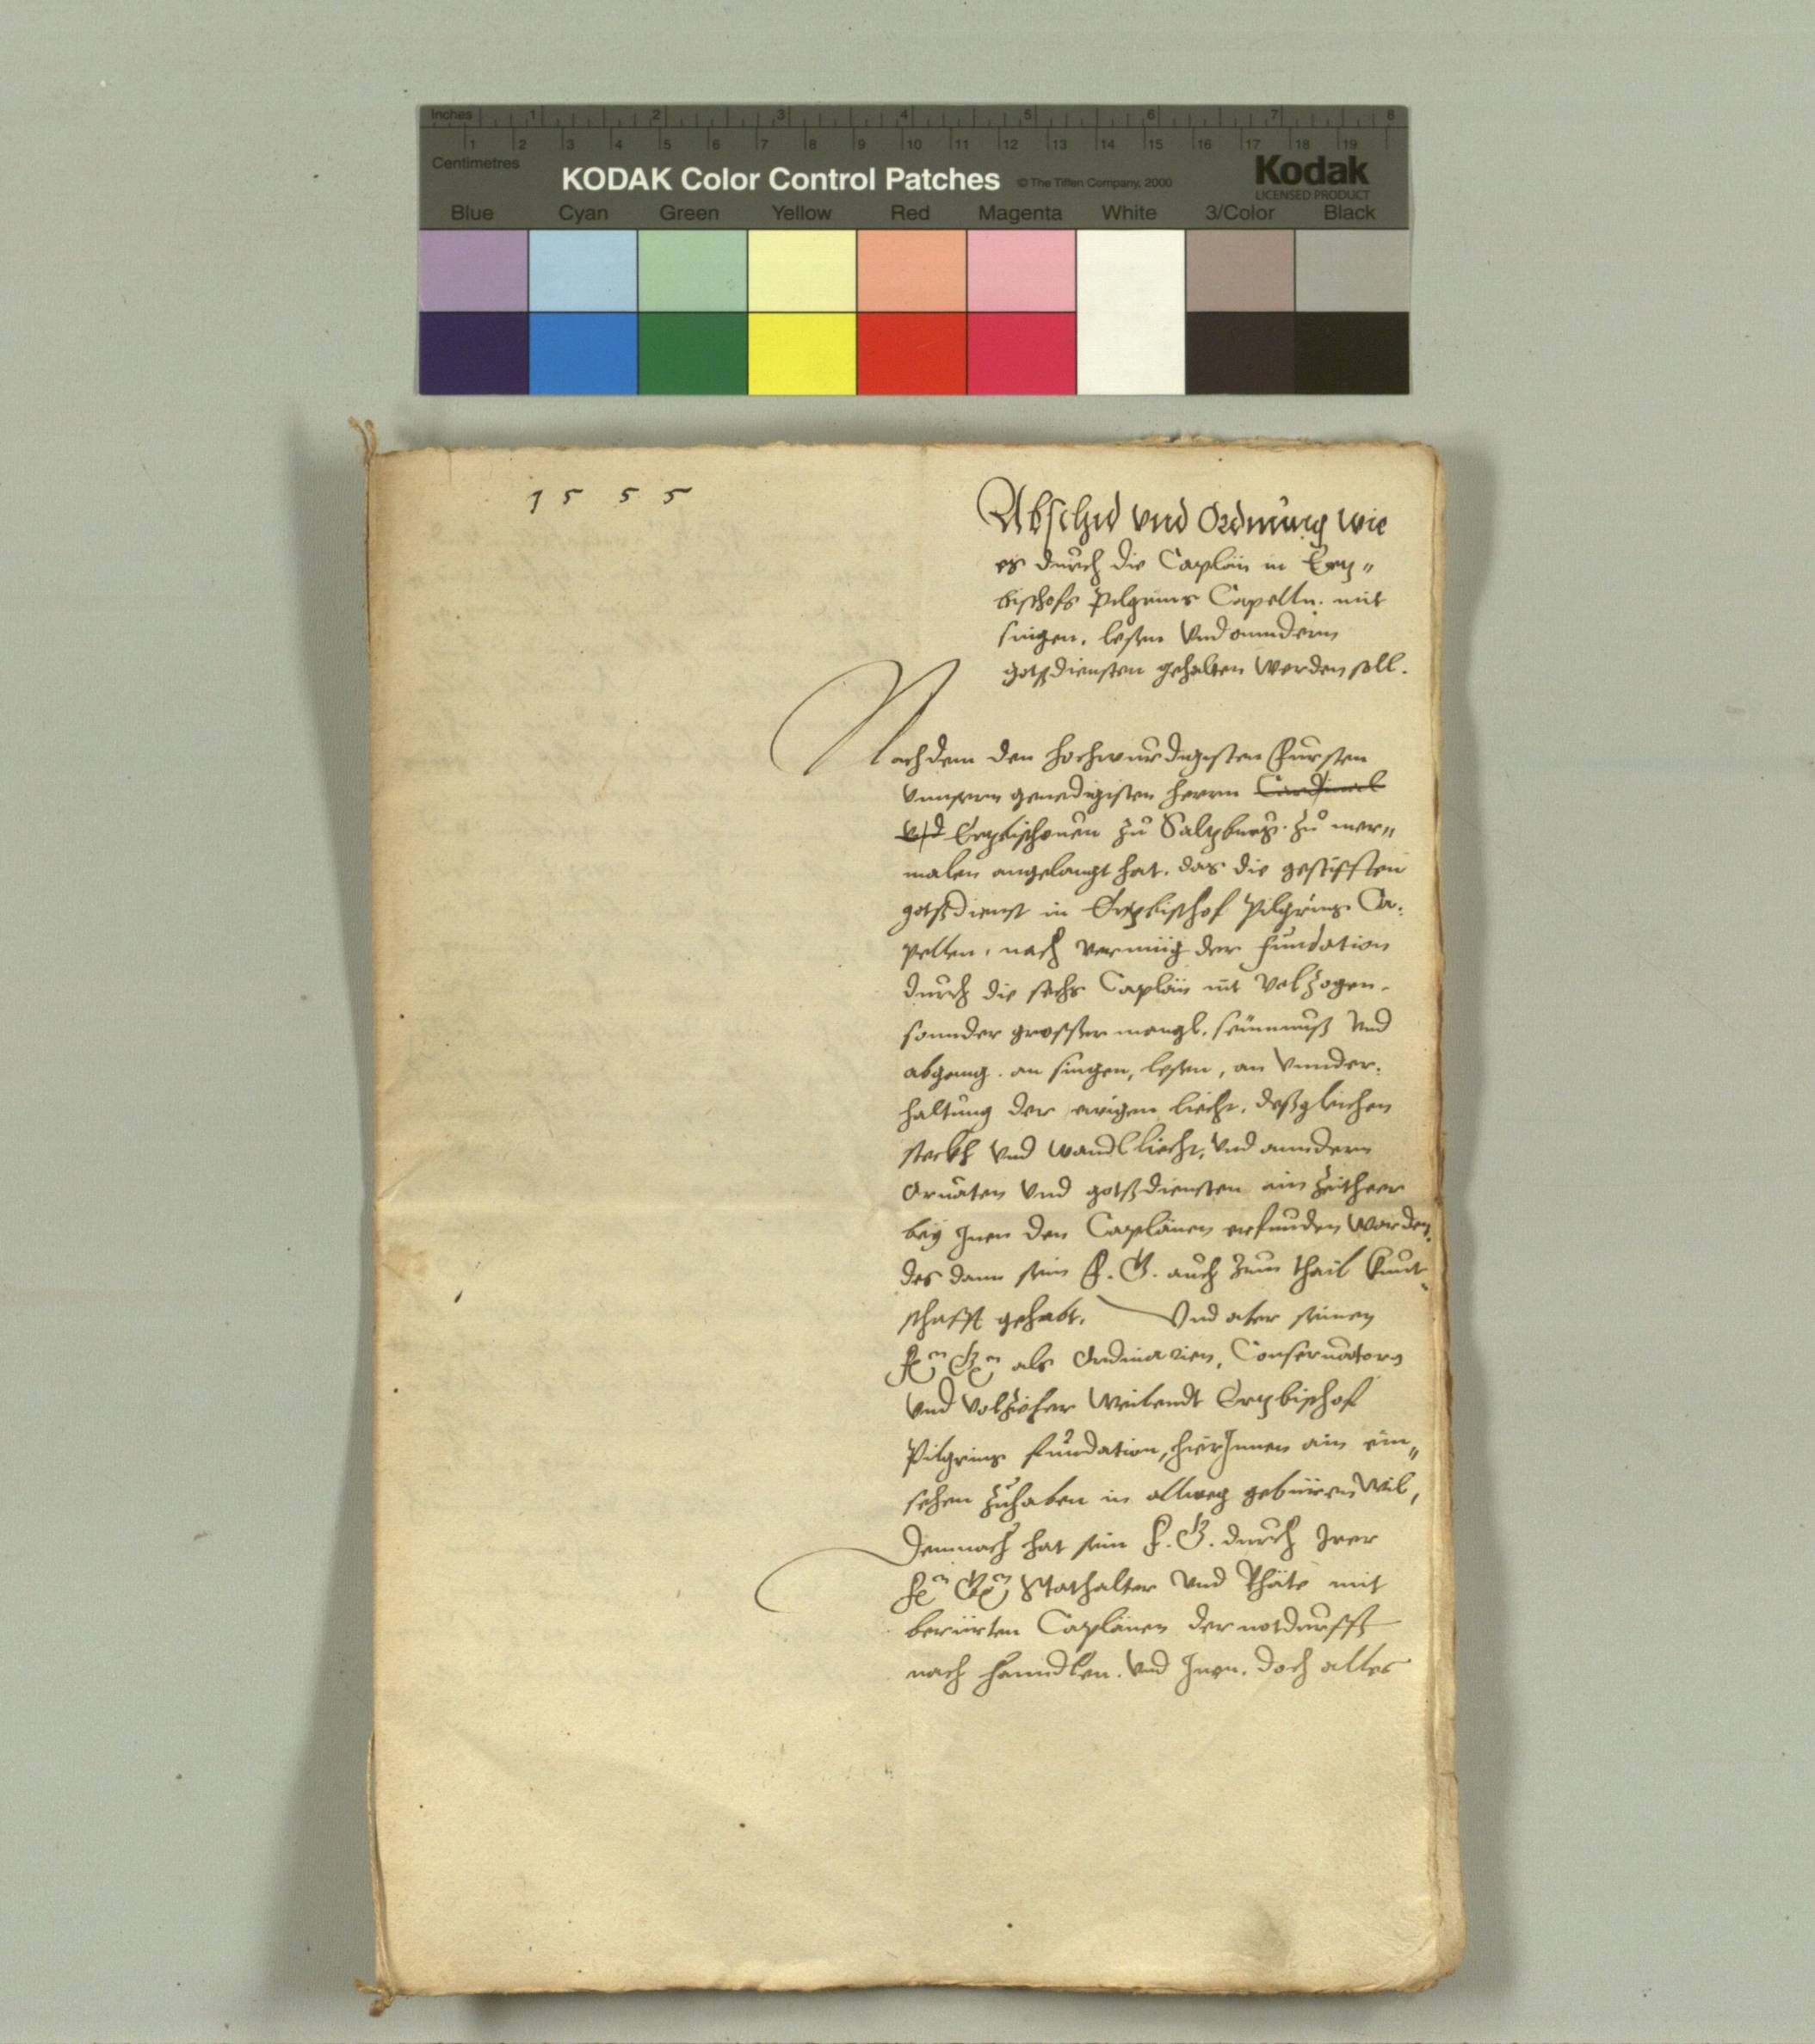 Inches 1 2 3 4 5 6 7 8
1 2 3 4 5 6 7 8 9 10 11 12 13 14 15 16 17 18 19
Centimetres
KODAK Color Control Patches © The Tiffen Company, 2000 Kodak
LICENSED PRODUCT
Blue Cyan Green Yellow Red Magenta White 3/Color Black
1555
Abschid vnd Ordnung wie
es durch die Caplän in Ertz„
bischofs Pilgrims Capelln. mit
singen, lesen vnd anndern
gotsdiensten gehalten werden soll.
Nachdem den hochwurdigisten Fursten
vnnsern genedigisten herrn Cardinal
vnd Ertzbischouen zu Saltzburg. zu mer„
malen angelangt hat. das die gestifften
gotsdienst in Ertzbischof Pilgrims Ca„
pellen, nach vermüg der fundation
durch die sechs Caplän nit volzogen.
sonnder grosser mangl, seumnuß vnd
abgang. an singen, lesen, an vnnder„
haltung der ewigen liecht, deßgleichen
steckh vnd wandl liecht, vnd anndern
Ornaten vnd gotsdiensten ein zeitheer
bey Jnen den Caplänen erfunden worden.
des dann sein F. G. auch zum thail kunt„
schafft gehabt. Vnd aber seinen
F. G. als Ordinarien, Conseruatorn
vnd volzieher weilendt Ertzbischof
Pilgrims fundation, hierJnnen ain ein„
sehen zuhaben in allweg gebüren wil,
Demnach hat sein F. G. durch Jrer
F. G. Stathalter vnd Rhäte mit
berürten Caplänen der notdurfft
nach hanndlen. vnd Jnen. doch alles